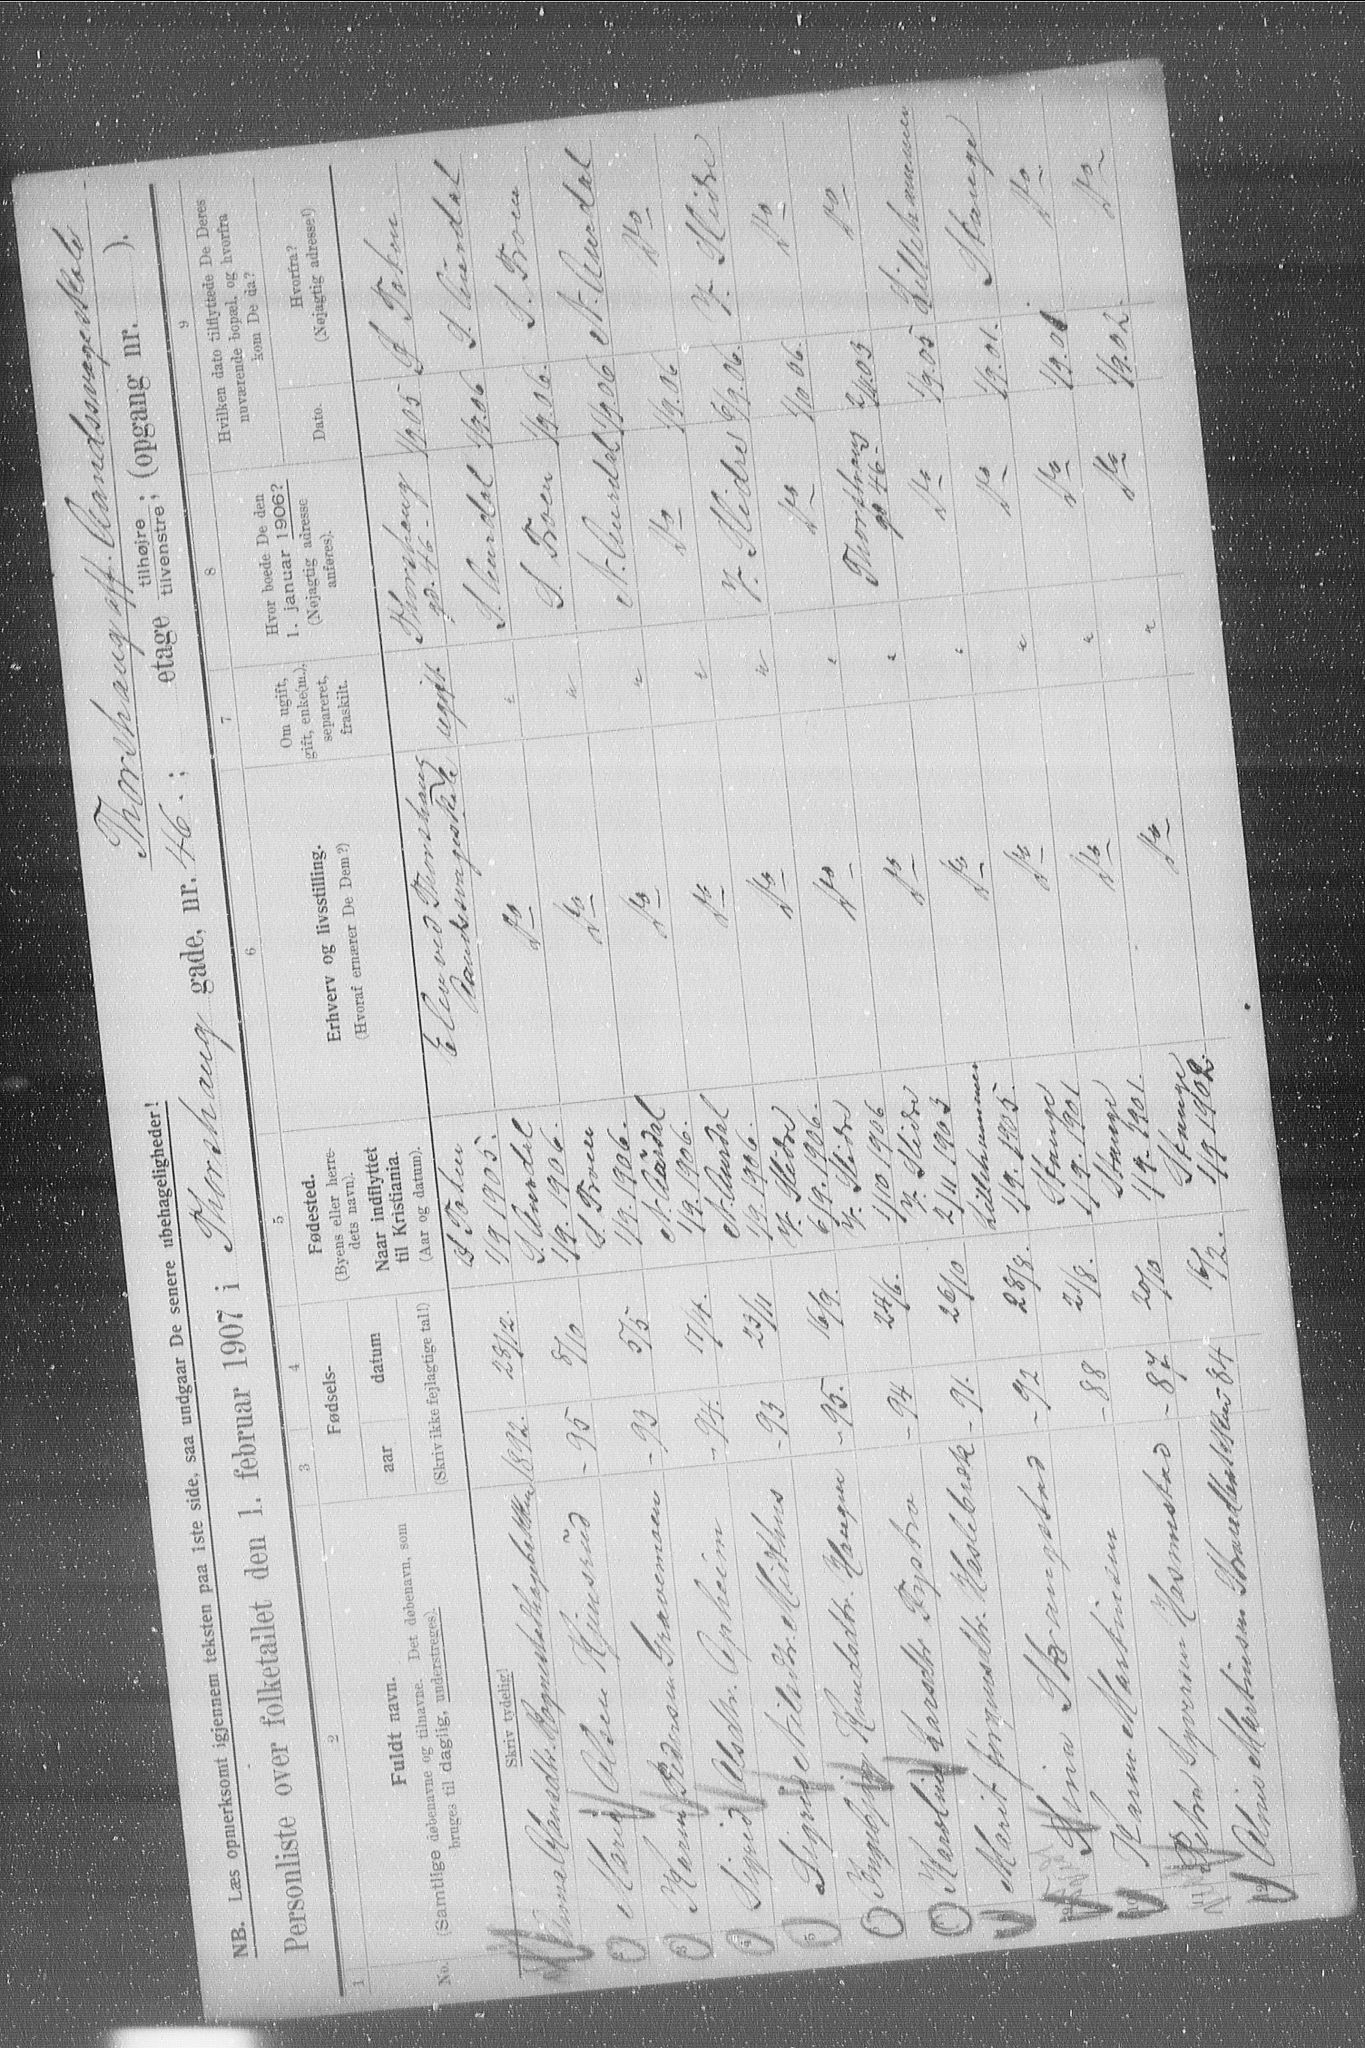 NB. Læs opmerksomt igjennem teksten paa 1ste side, saa undgaar De senere ubehageligheder!
Thorshaug off. Aandssvageskole
Personliste over folketallet den 1. februar 1907 i Thorshaug gade, nr. 46.; etage tilhøjre; tilvenstre; (opgang nr. ).
1 2 3 4 5 6 7 8 9
No.
Fuldt navn.
(Samtlige døbenavne og tilnavne. Det døbenavn, som
bruges til daglig, understreges).
Fødsels-
aar datum
(Skriv ikke fejlagtige tal!)
Fødested.
(Byens eller herre-
dets navn).
Naar indflyttet
til Kristiania.
(Aar og datum).
Erhverv og livsstilling.
(Hvoraf ernærer De Dem?)
Om ugift,
gift, enke(m.),
separeret,
fraskilt.
Hvor boede De den
1. januar 1906?
(Nøjagtig adresse
anføres).
Hvilken dato tilflyttede De Deres
nuværende bopæl, og hvorfra
kom De da?
Dato.
Hvorfra?
(Nøjagtig adresse!)
Skriv tydelig!
1892. 28/12. 1/9 1905. Elev ved Thorshaug Aandssvageskole ugift Thorshaug gd. 46 1/9 05
Marie Olsen Kjensrüd - 95 8/10 S. Aurdal 1/9. 1906. Do " S. Aurdal 1/9.06 S. Aurdal
Karen Pedersen Gravemoen - 93 5/5 1/9. 1906. Do " 1/9.06.
Sigrid Olsdtr. Opheim - 94. 17/4. N. Aurdal 1/9. 1906. Do " N. Aurdal 1/9.06 N. Aurdal
Sigrid Nilsdtr. - 93 23/11 N. Aurdal 1/9. 1906. Do " Do 1/9.06 Do
Ingebjørg Knudsdtr. Haugen - 95. 16/9. V. Slidre 6/9. 1906. Do " V. Slidre 6/9.06. V. Slidre
Karoline - 94 24/6. V. Slidre 1/10 1906 Do " Do 1/10 06. Do
Marit - 91. 26/10 V. Slidre 2/11 1903 Do " Thorshaug gd 46 Do
Stina - 92 28/8. Lillehammer 1/9. 1905. Do " Do 1/9.05 Lillehammer
Karen Martinsen - 88 21/8. Stange 1/9. 1901 Do " Do 1/9.01. Stange
Petra Syversen - 87 20/10 Stange 1/9. 1901. Do " Do 1/9.01 Do
Martinsen - 84 16/2. Stange 1/9 1902. Do " Do 1/9.02. Do